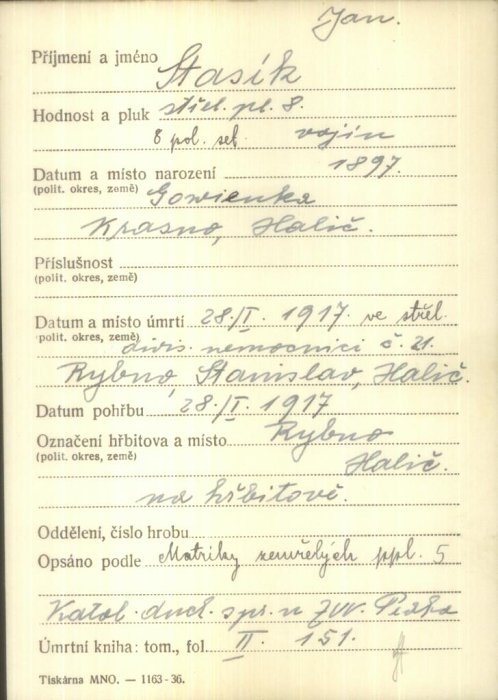 Jan.
Příjmení a jméno Stasík
Hodnost a pluk střel. pl. 8.
8 pol. seb. vojín
Datum a místo narození 1897.
(polit. okres, země) Gowienka
Krasno, Halič.
Příslušnost
(polit. okres, země)
Datum a místo úmrtí 28./I. 1917 ve střel.
(polit. okres, země) divis. nemocnici č. 21.
Rybno, Stanislav, Halič.
Datum pohřbu 28./I. 1917
Označení hřbitova a místo Rybno
(polit. okres, země) Halič.
na hřbitově.
Oddělení, číslo hrobu
Opsáno podle Matriky zemřelých ppl. 5
Katol. duch. spr. u ZVV. Praha
Úmrtní kniha: tom., fol. II. 151.
Tiskárna MNO. — 1163-36.